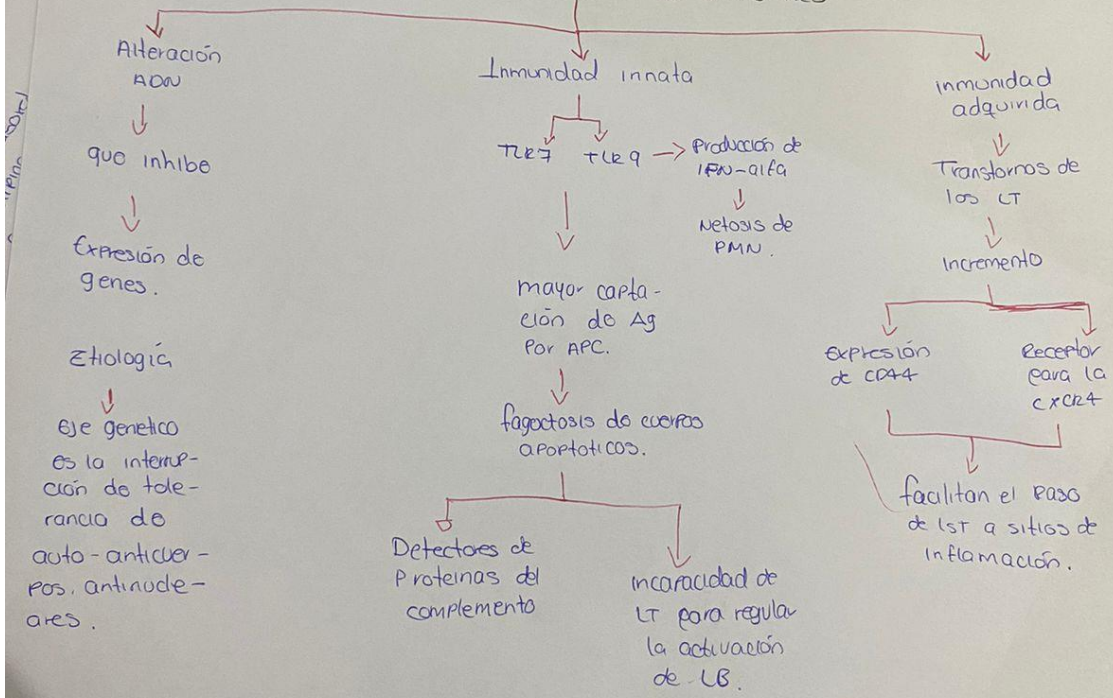 Alteración
ADN
que inhibe
Expresión de
genes.
Etiología
Eje genetico
es la interrup-
ción de tole-
rancia de
auto-anticuer-
pos. antinucle-
ares.
Inmunidad innata
TLR7 TLR9
Producción de
IFN-alfa
Netosis de
PMN.
mayor capta-
ción de Ag
Por APC.
fagoctosis de cuerpos
apoptoticos.
Detectores de
Proteinas del
complemento
incapacidad de
LT para regular
la activación
de LB.
inmunidad
adquirida
Transtornos de
los LT
incremento
Expresión
de CD44
Receptor
para la
CXCR4
facilitan el paso
de LST a sitios de
inflamación.